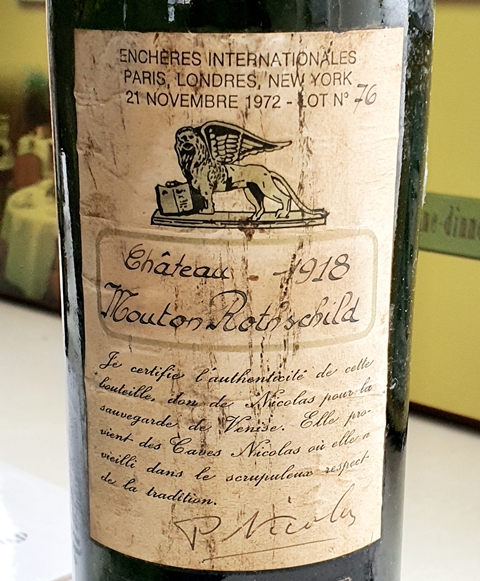 ENCHÈRES INTERNATIONALES
PARIS, LONDRES, NEW YORK
21 NOVEMBRE 1972 - LOT N° 76
Château - 1918
Mouton Rothschild
Je certifie l'authenticité de cette
bouteille, don de Nicolas pour la
sauvegarde de Venise. Elle pro-
vient des Caves Nicolas où elle a
vieilli dans le scrupuleux respect
de la tradition.
P. Nicolas